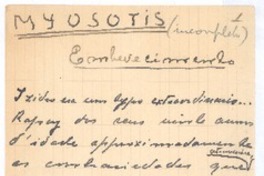 MYOSOTIS (incompleto) 1
Embevecimento
Izidro era um typo extraordinario...
Rapaz dos seus vinte annos
d'idade approximadamente
as contrariedades que